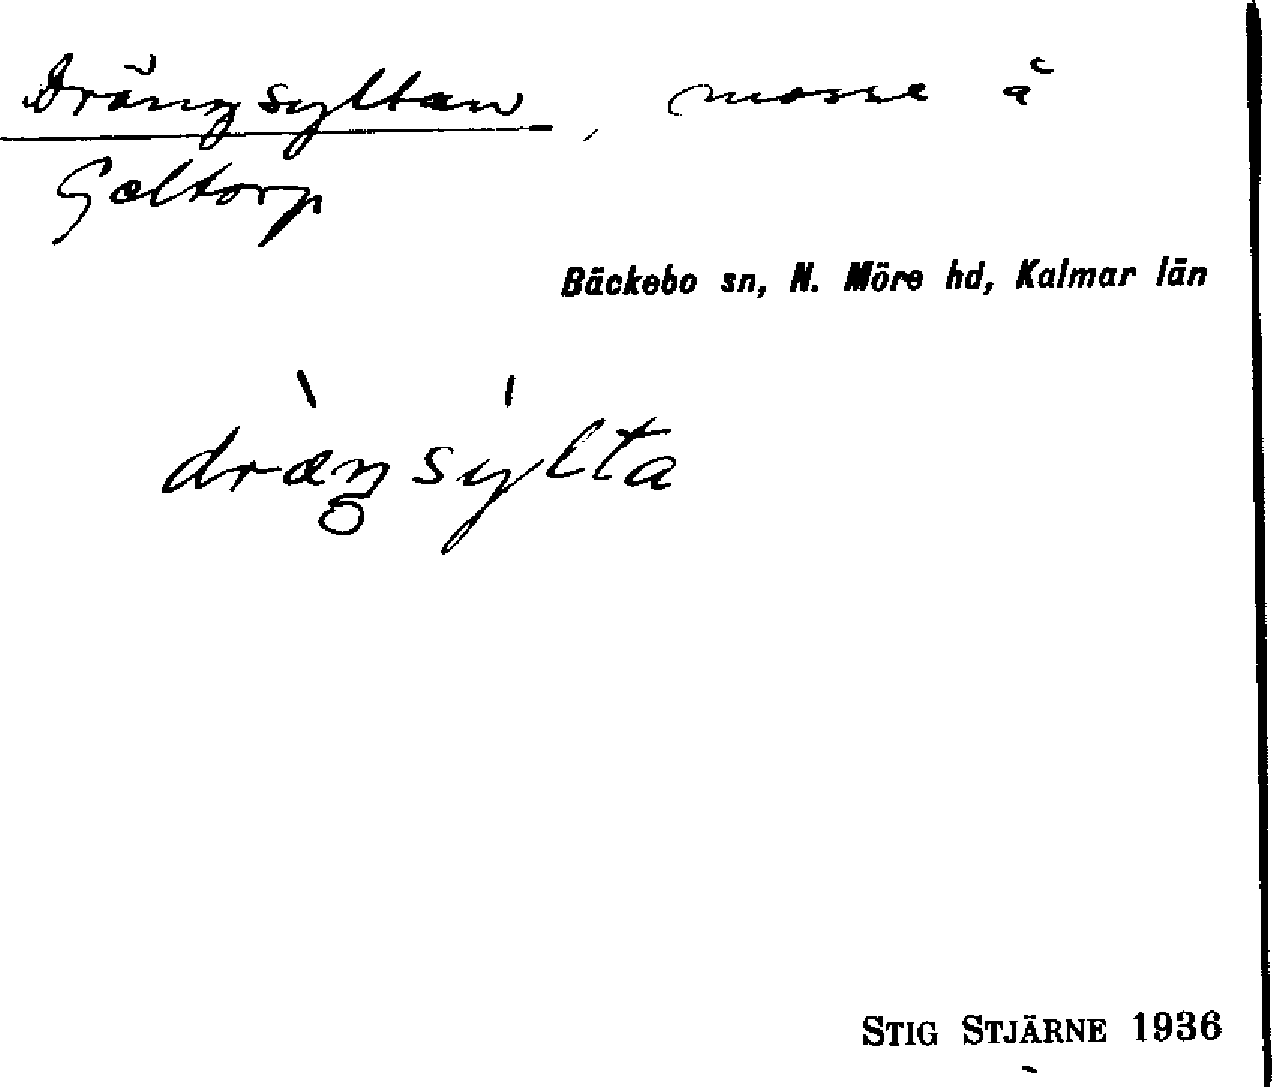 Drängsyltan, mosse å
Galtorp
Bäckebo sn, N. Möre hd, Kalmar län
dräŋsylta
STIG STJÄRNE 1936